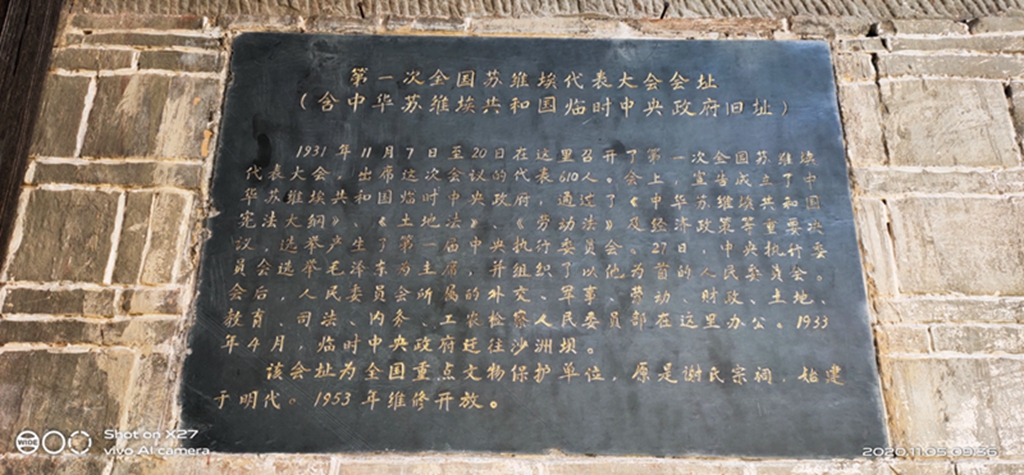 第一次全国苏维埃代表大会会址
（含中华苏维埃共和国临时中央政府旧址）
1931年11月7日至20日在这里召开了第一次全国苏维埃
代表大会，出席这次会议的代表610人。会上，宣告成立了中
华苏维埃共和国临时中央政府，通过了《中华苏维埃共和国
宪法大纲》、《土地法》、《劳动法》及经济政策等重要决
议，选举产生了第一届中央执行委员会。27日，中央执行委
员会选举毛泽东为主席，并组织了以他为首的人民委员会。
会后，人民委员会所属的外交、军事、劳动、财政、土地、
教育、司法、内务、工农检察人民委员部在这里办公。1933
年4月，临时中央政府迁往沙洲坝。
该会址为全国重点文物保护单位，原是谢氏宗祠，始建
于明代。1953年维修开放。
Shot on X27
vivo AI camera
2020.11.05 09:36